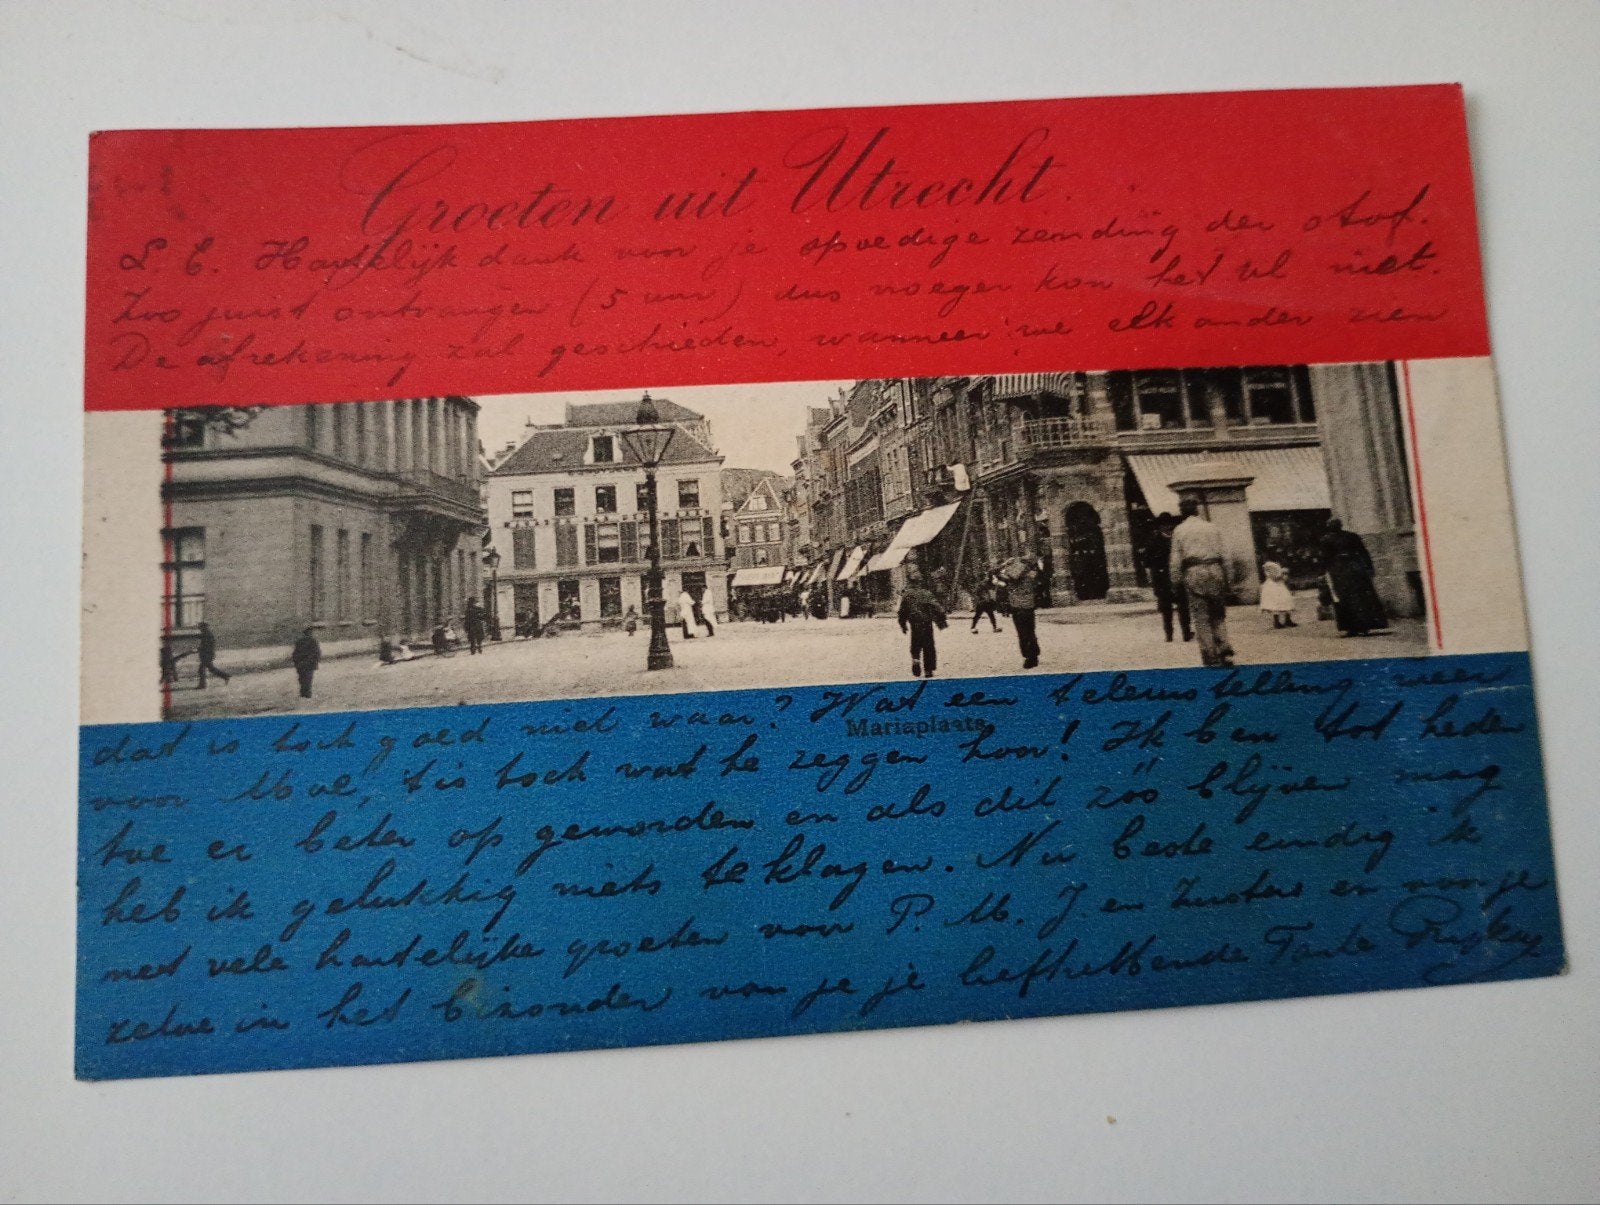 Groeten uit Utrecht.
L. C. Hartelijk dank voor je spoedige zending der stof.
Zoo juist ontvangen (5 uur) dus vroeger kon het al niet.
De afrekening zal geschieden, wanneer we elkander zien
dat is toch goed niet waar? Wat een teleurstelling weer
Mariaplaats
voor Moe, 't is toch wat te zeggen hoor! Ik ben tot heden
toe er beter op geworden en als dit zóó blijven mag
heb ik gelukkig niets te klagen. Nu beste eindig ik
met vele hartelijke groeten van P. M. J. en Zuster en van je
zelve in het bizonder van je je liefhebbende Tante